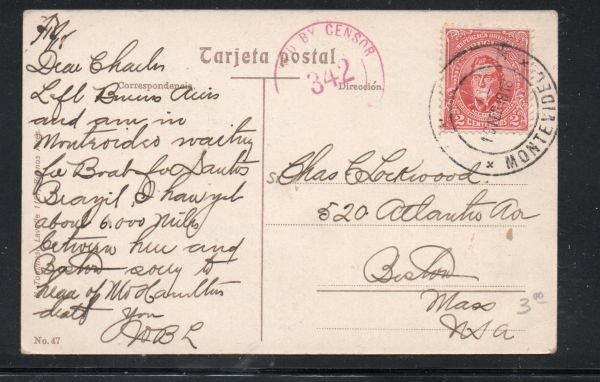 Dear Charles
Left Buenos Aires
and am in
Montevideo waiting
for Boat for Santos
Brazil, I have yet
about 6.000 miles
between here and
Boston sorry to
hear of Mr Hamiltons
death you
WBL
No. 47
BY CENSOR
342
Tarjeta postal
Correspondencia.
Dirección.
Chas C Lockwood.
520 Atlantic Av
Boston
Mass
USA
3.00
2
CENTESIMOS
2
MONTEVIDEO